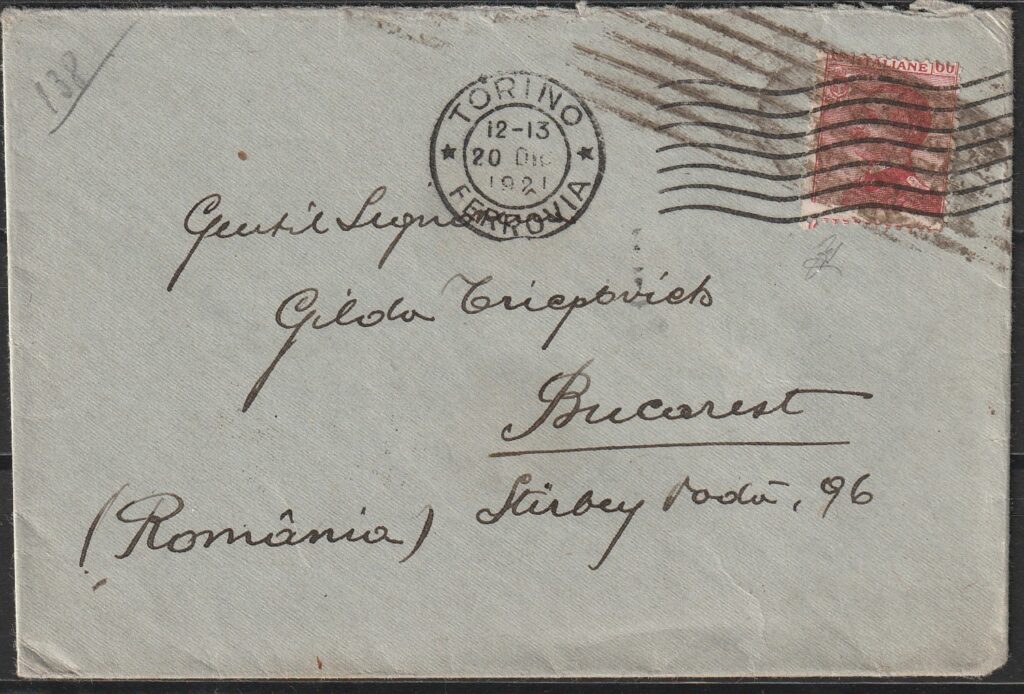 138
TORINO
12-13
20 DIC
1921
FERROVIA
ITALIANE 60
Gentil Signora
Gilda Tricpovich
Bucarest
Stirbey Vodă, 96
(România)